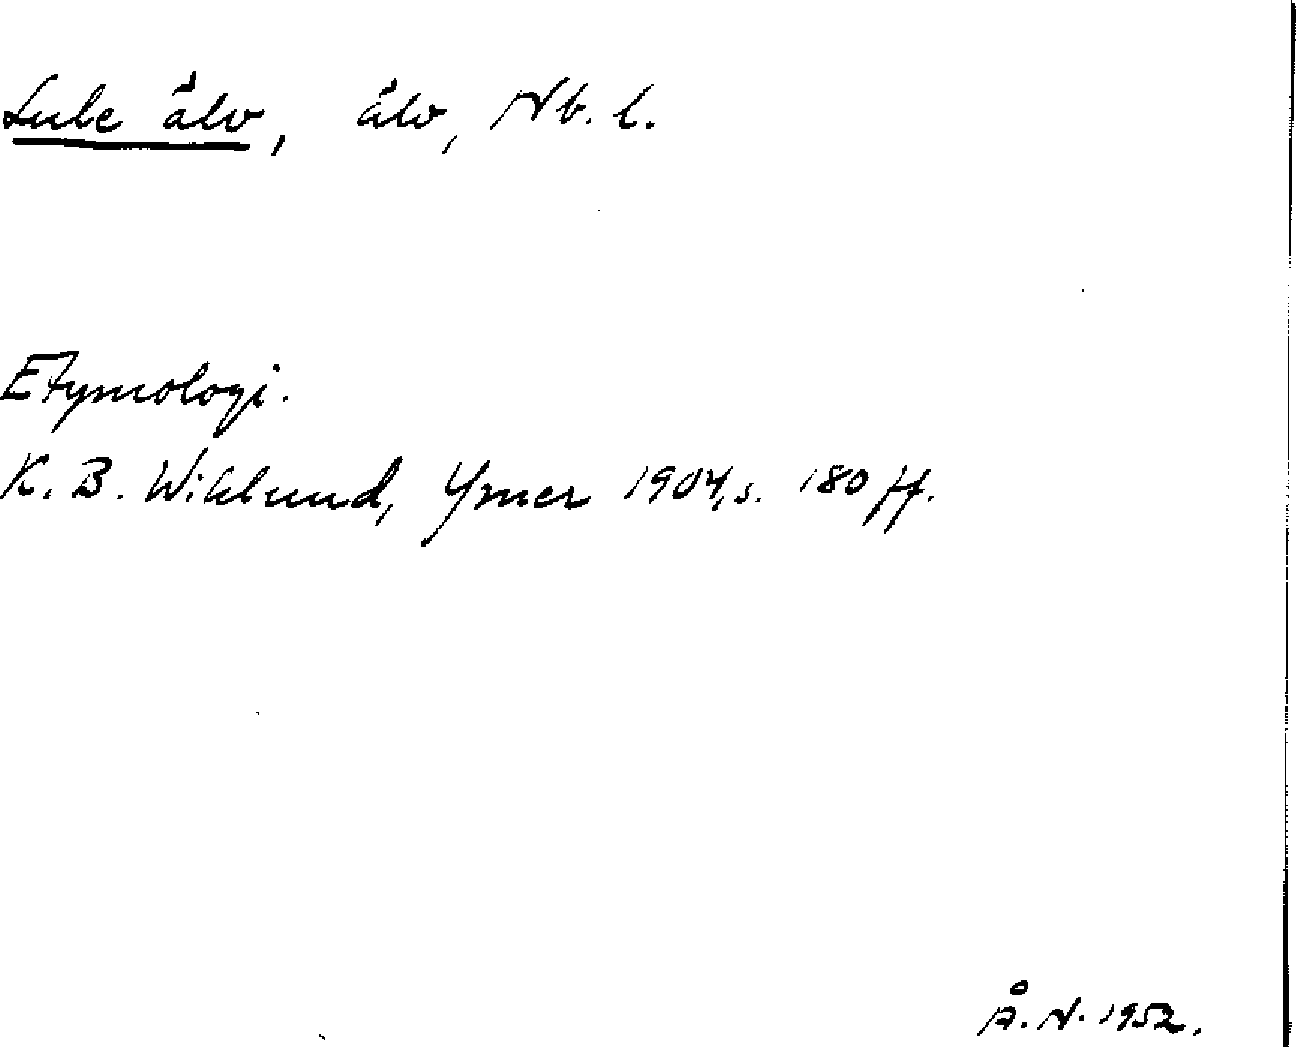 Lule älv, älv, Nb. l.
Etymologi.
K. B. Wiklund, Ymer 1904, s. 180 ff.
Å. N. 1952.